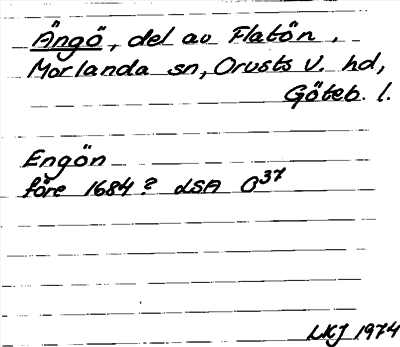 Ängö, del av Flatön,
Morlanda sn, Orusts V. hd,
Göteb. l.
Engön
före 1684? LSA O37
LKJ 1974